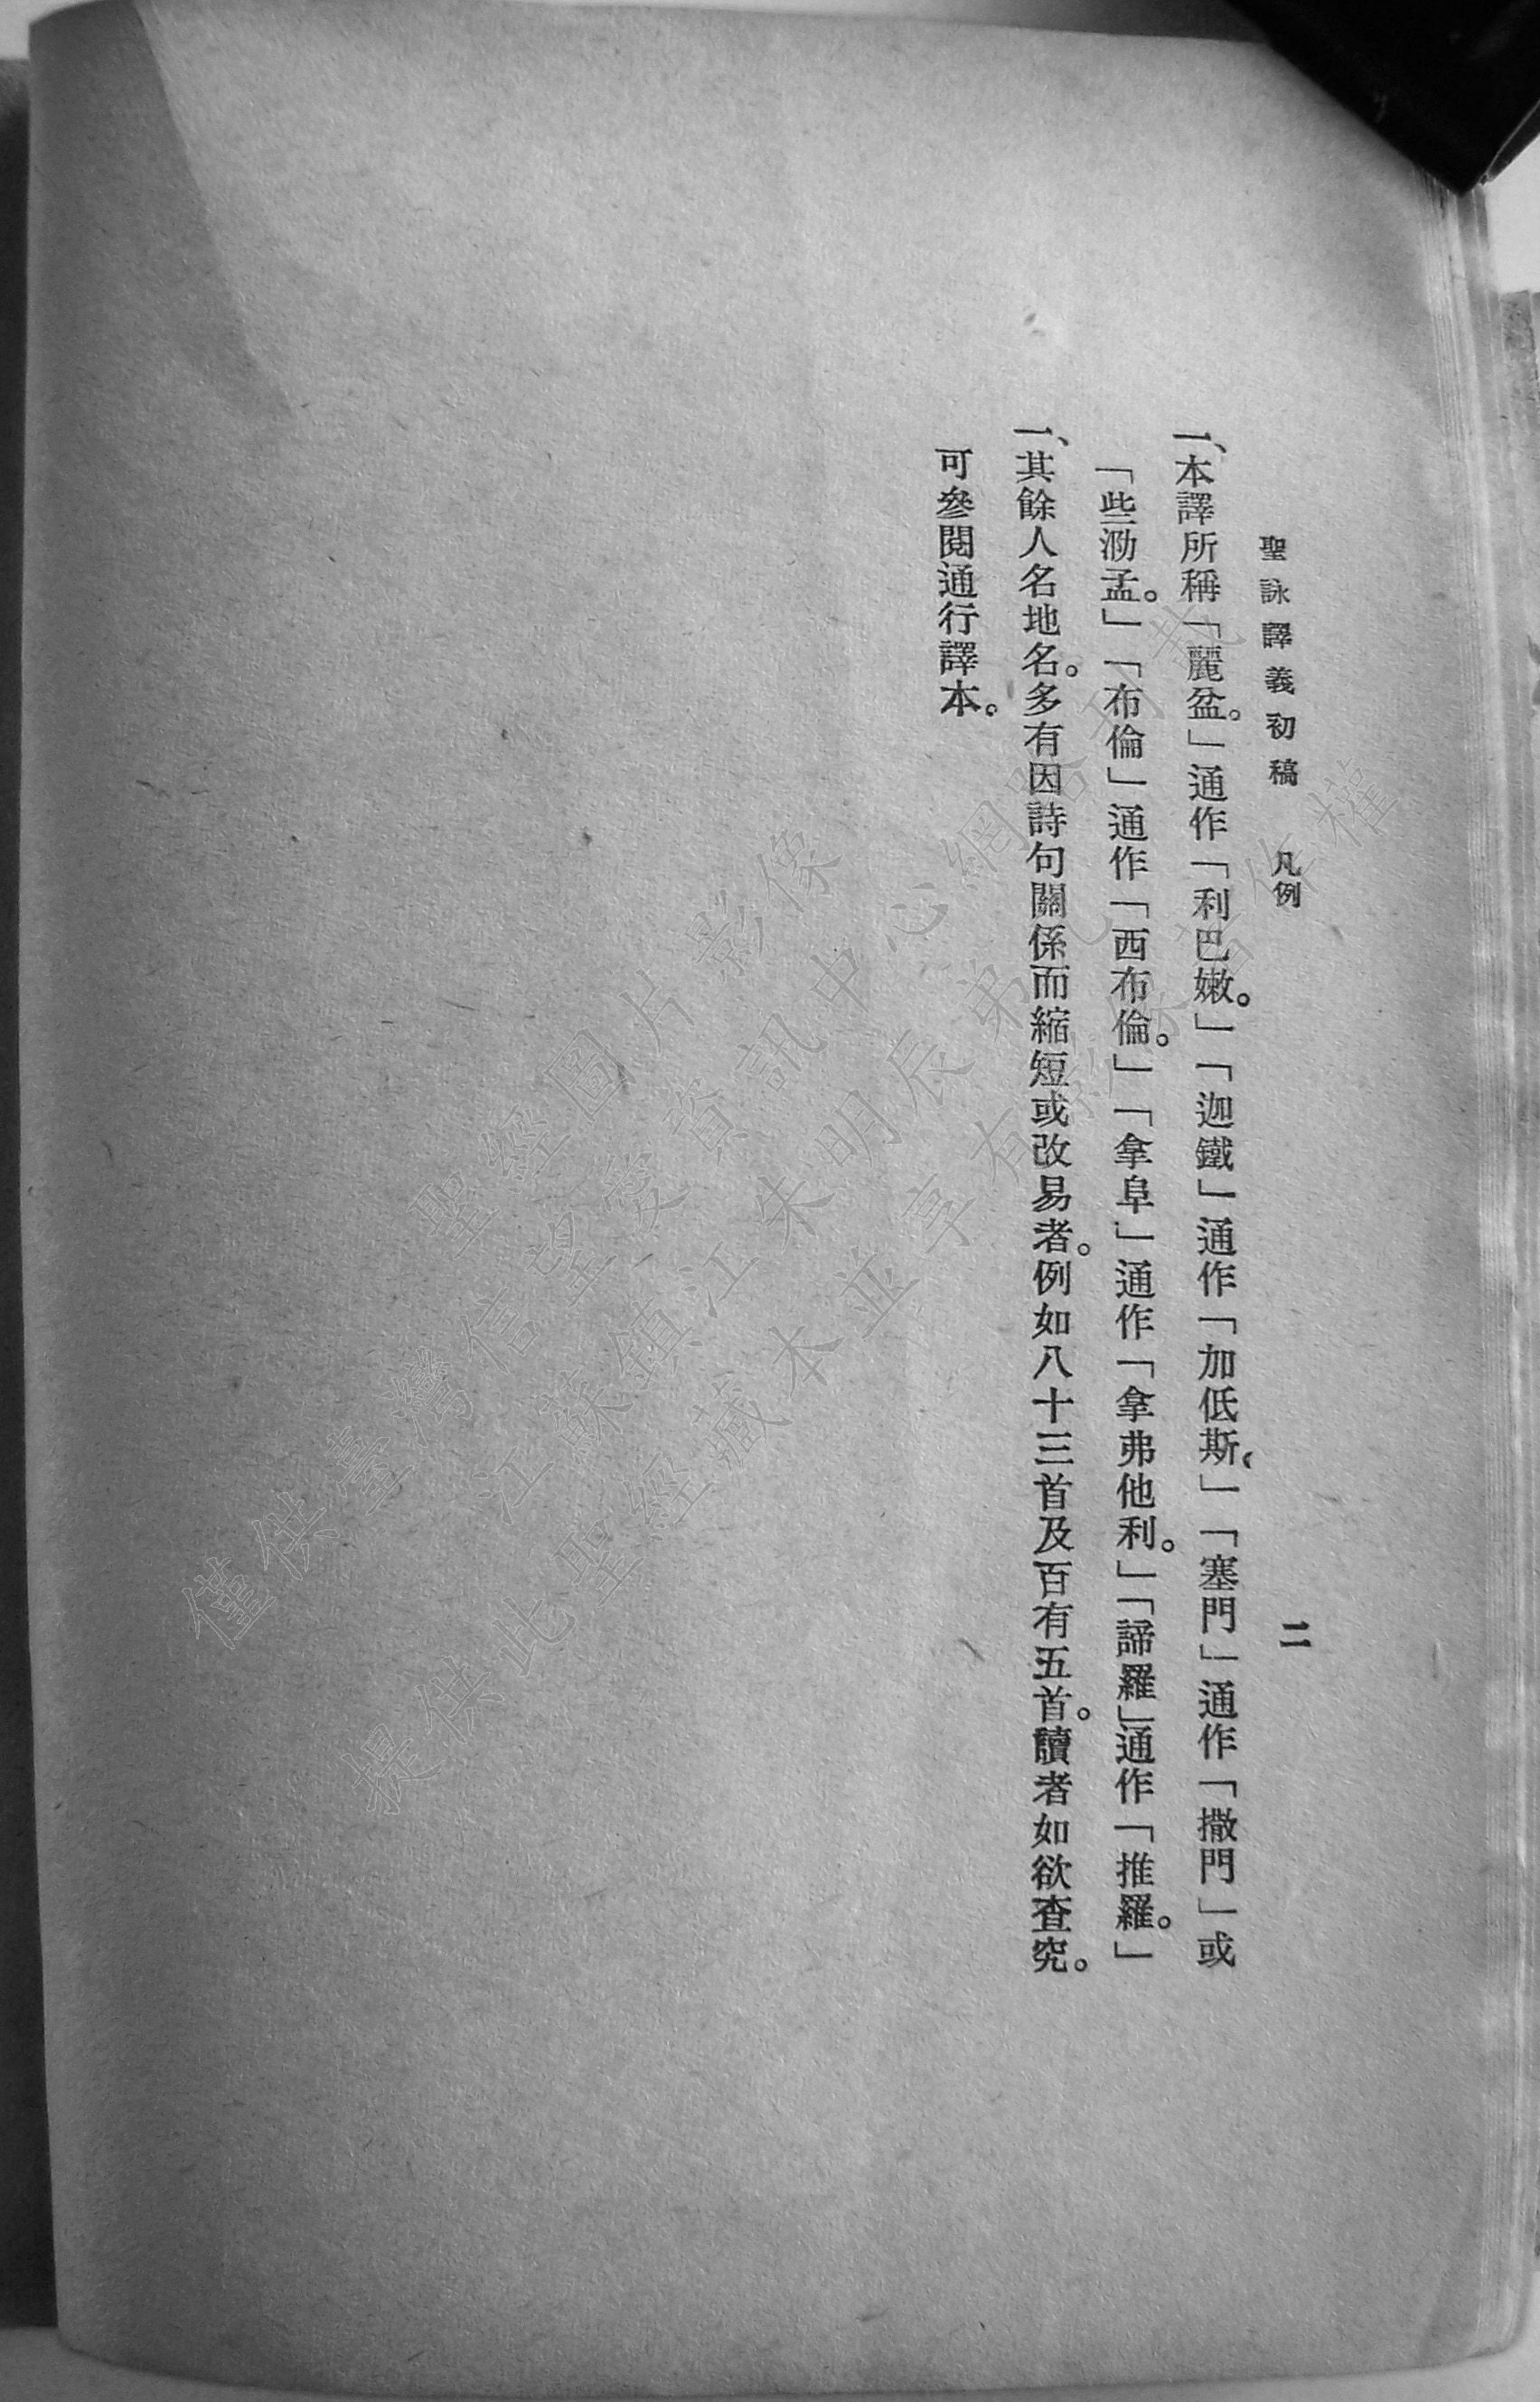 聖詠譯義初稿 凡例 二
一、本譯所稱「麗盆。」通作「利巴嫩。」「迦鐵」通作「加低斯、」「塞門」通作「撒門」或
「些泐孟。」「布倫」通作「西布倫。」「拿阜」通作「拿弗他利。」「諦羅」通作「推羅。」
一、其餘人名地名。多有因詩句關係而縮短或改易者。例如八十三首及百有五首。讀者如欲查究。
可參閱通行譯本。
聖經圖片影像
僅供臺灣信望愛資訊中心網路刊載
江蘇鎮江朱明辰弟兄
提供此聖經藏本並享有影像著作權